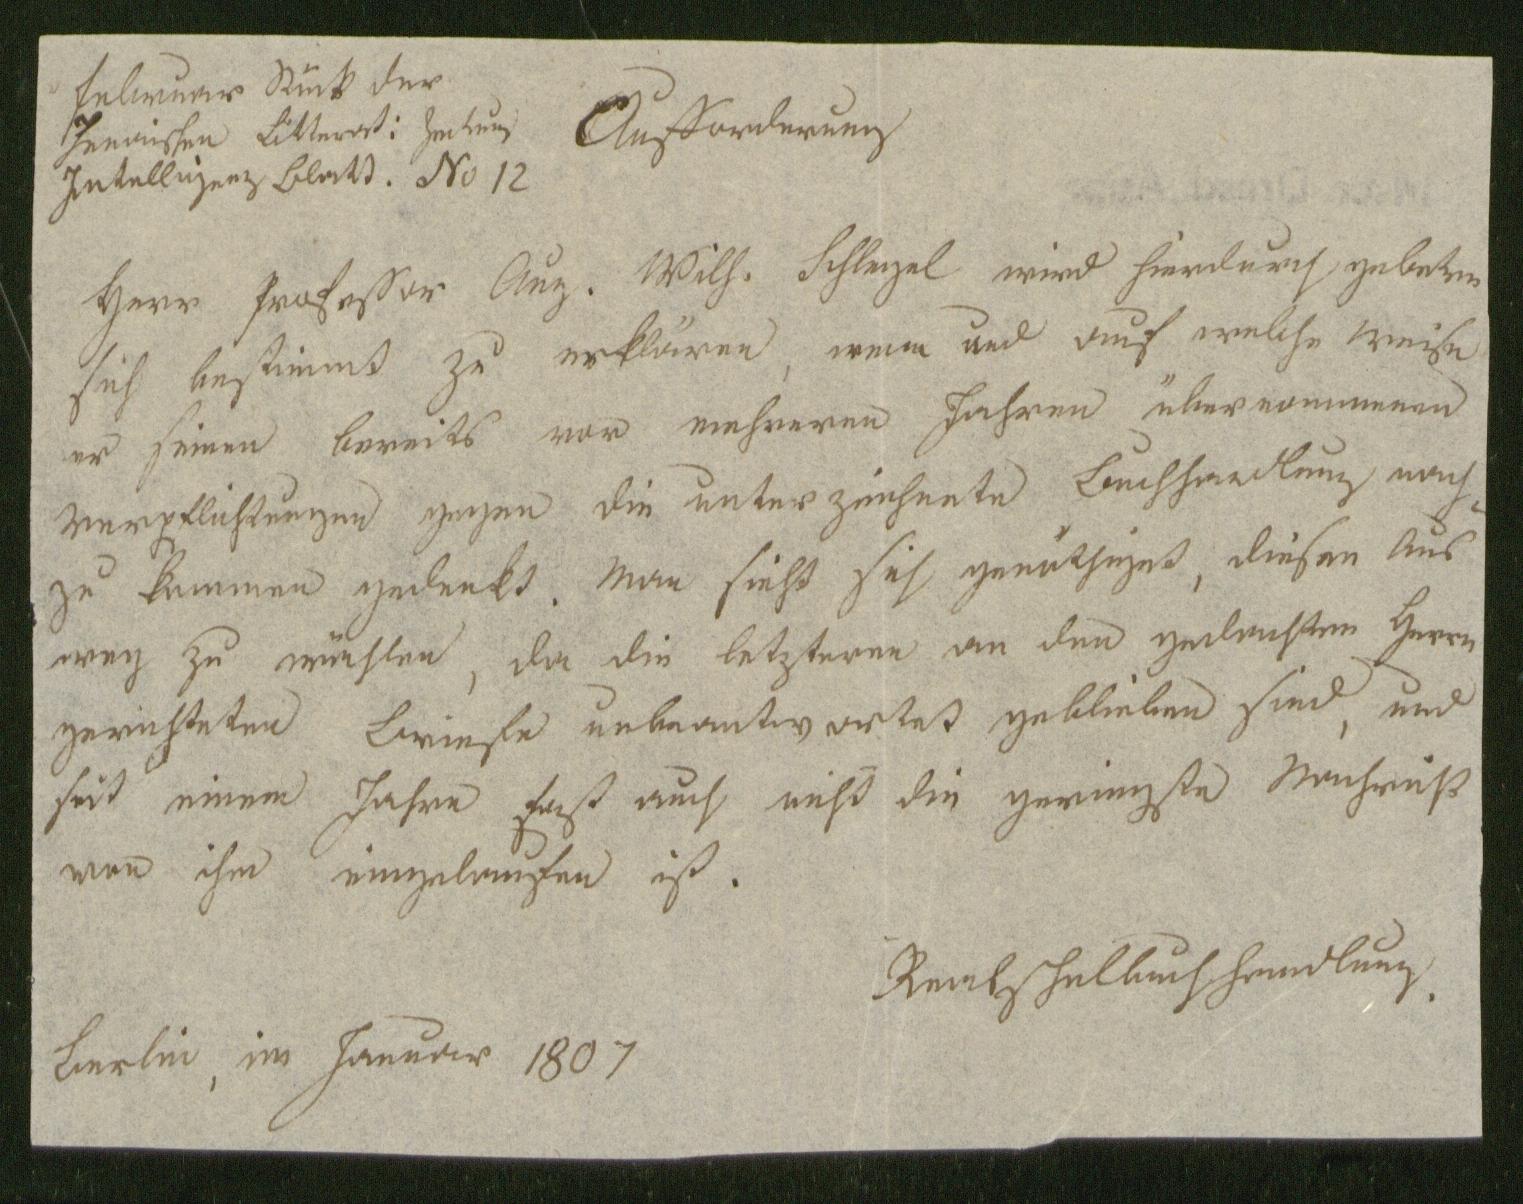 Februar Stück der
Jenaischen Litterat: Zeitung
Intelligenz Blatt. No 12
Aufforderung
Herr Professor Aug. Wilh. Schlegel wird hierdurch gebeten
sich bestimmt zu erklären, wenn und auf welche Weise
er seinen bereits vor mehreren Jahren übernommenen
Verpflichtungen gegen die unterzeichnete Buchhandlung nach
zu kommen gedenkt. Man sieht sich genöthiget, diesen Aus
weg zu wählen, da die letzteren an den gedachten Herrn
gerichteten Briefe unbeantwortet geblieben sind, und
seit einem Jahre fast auch nicht die geringste Nachricht
von ihm eingelaufen ist.
Realschulbuchhandlung.
Berlin, im Januar 1807